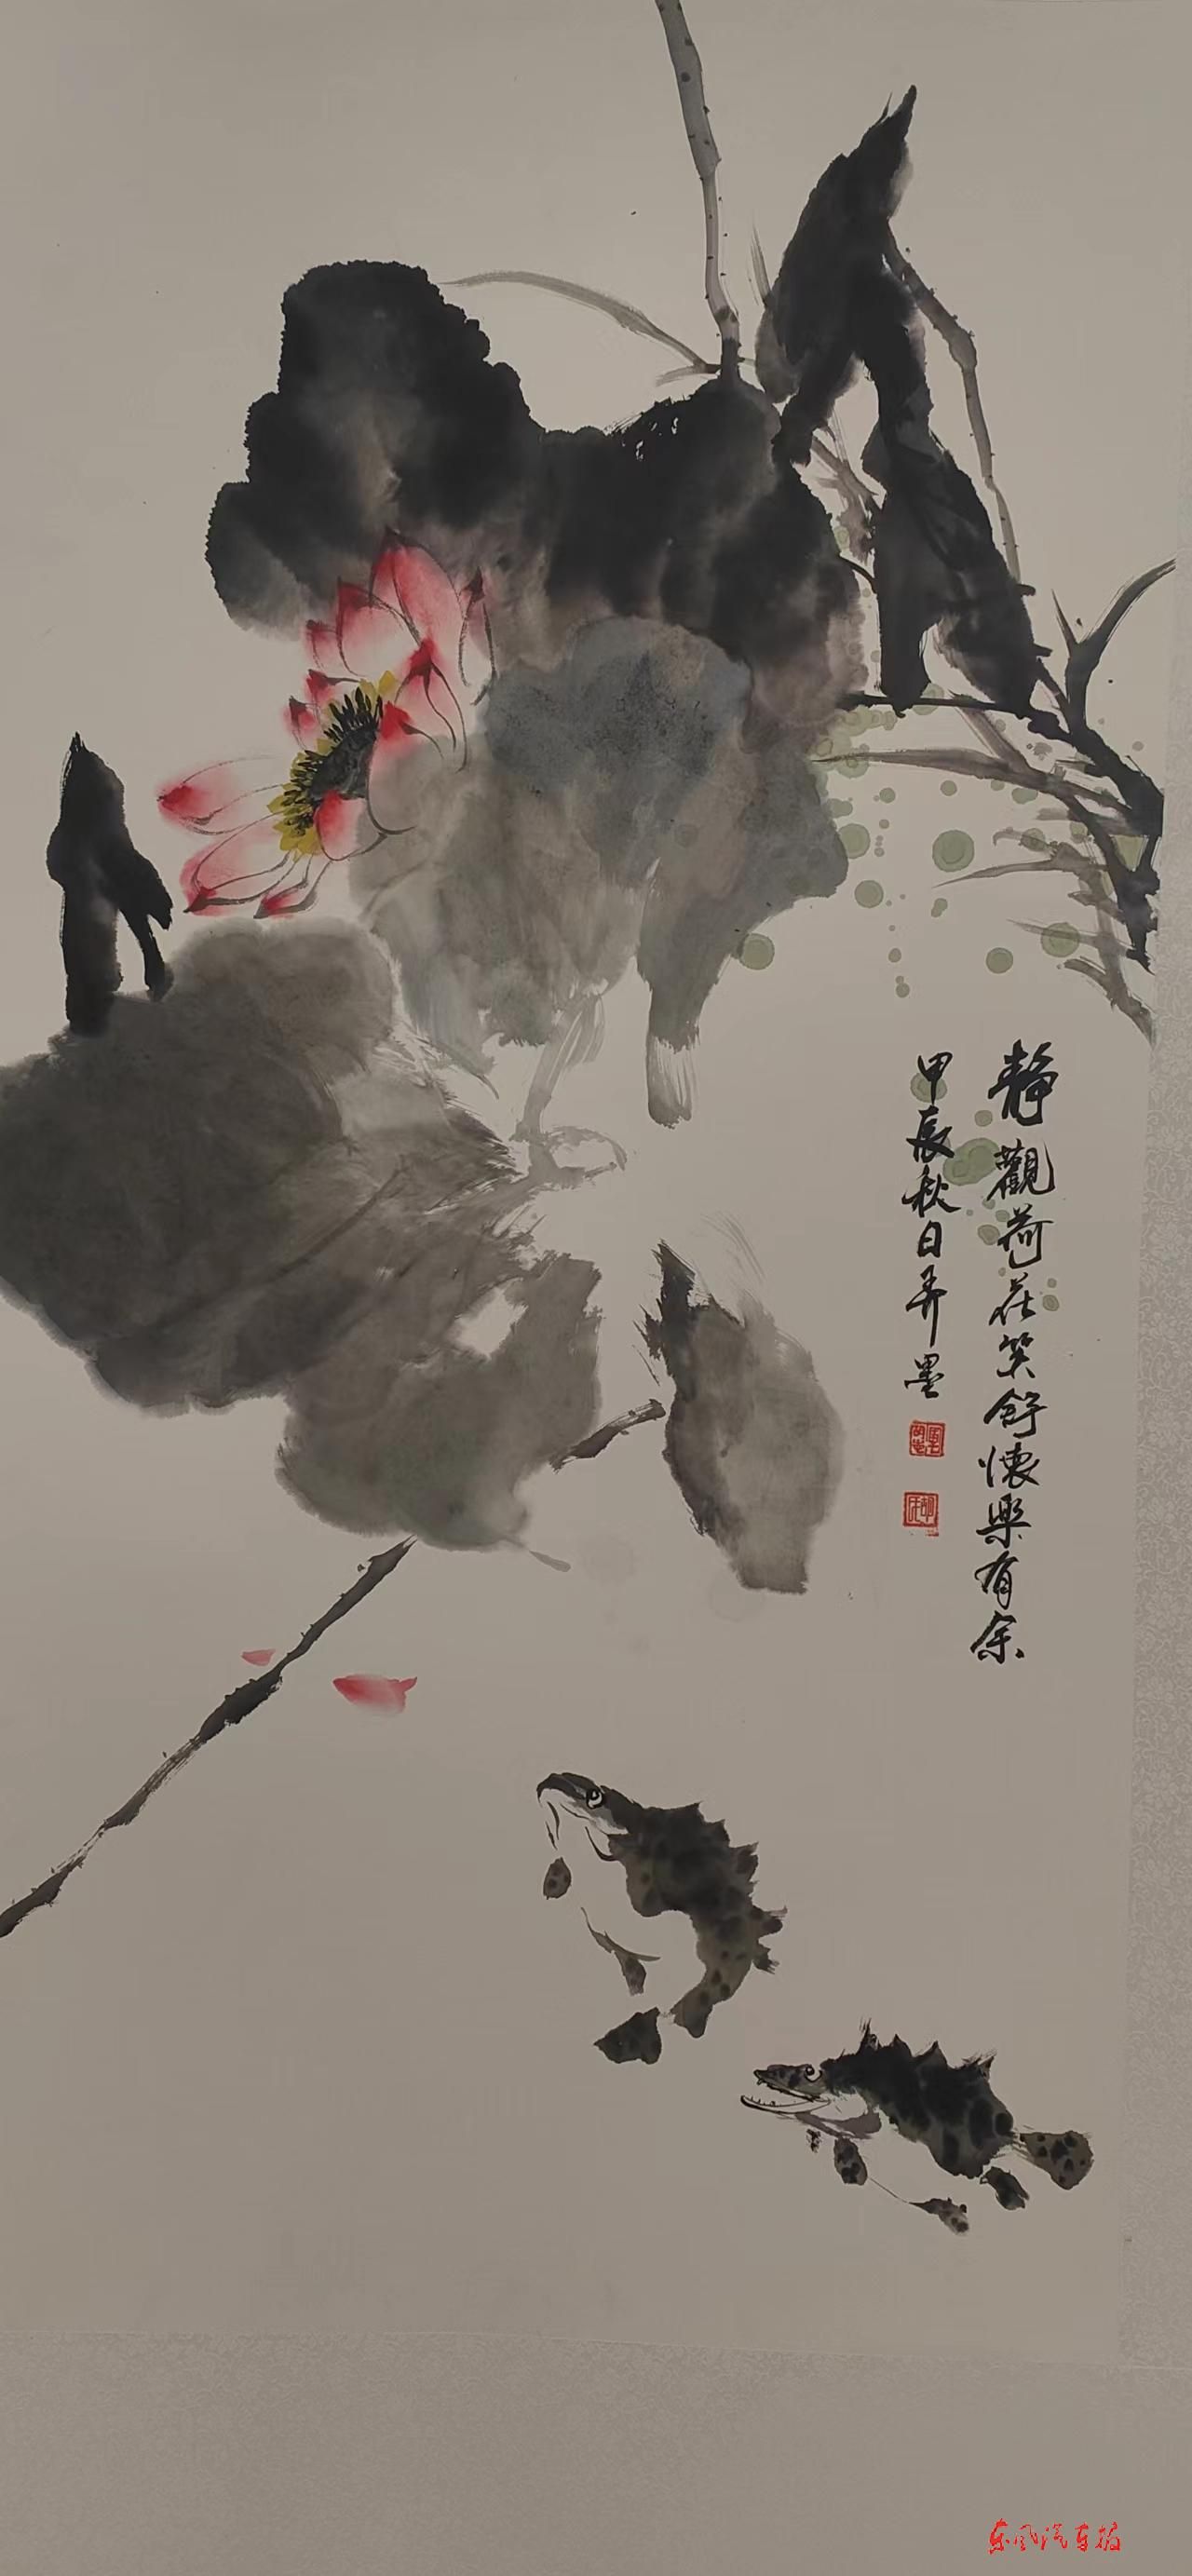 靜觀荷花笑舒懷樂有余
甲辰秋日弄墨
东风汽车报